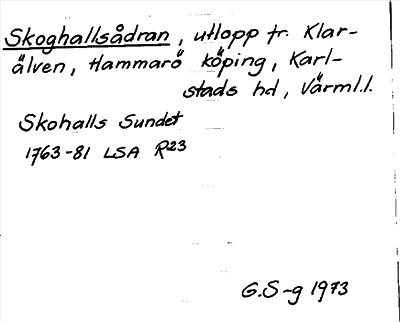 Skoghallsådran, utlopp fr. Klar-
älven, Hammarö köping, Karl-
stads hd, Värml.l.
Skohalls Sundet
1763-81 LSA R23
G.S-g 1973